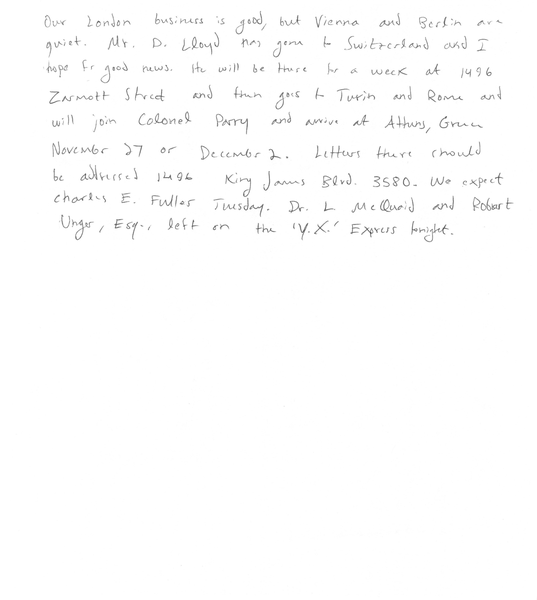 Our London business is good, but Vienna and Berlin are
quiet. Mr. D. Lloyd has gone to Switzerland and I
hope for good news. He will be there for a week at 1496
Zarmott Street and then goes to Turin and Rome and
will join Colonel Parry and arrive at Athens, Greece
November 27 or December 2. Letters there should
be addressed 1496 King James Blvd. 3580. We expect
Charles E. Fuller Tuesday. Dr. L McQuaid and Robert
Unger, Esq., left on the 'Y.X.' Express tonight.